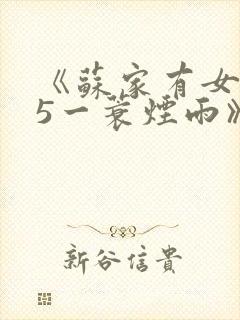 《蘇家有女
5一蓑煙雨》
新谷信貴